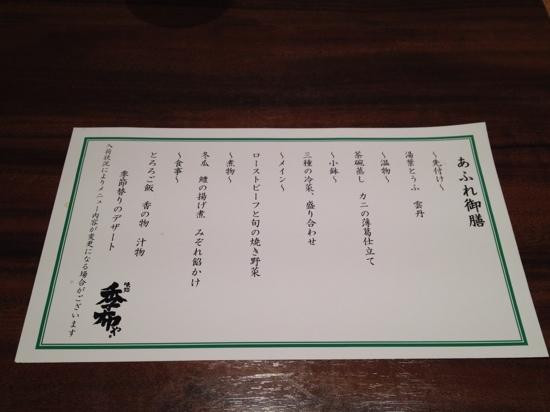 あふれ御膳
～先付け～
湯葉とうふ 雲丹
～温物～
茶碗蒸し カニの薄葛仕立て
～小鉢～
三種の冷菜、盛り合わせ
～メイン～
ローストビーフと旬の焼き野菜
～煮物～
冬瓜 鱧の揚げ煮 みぞれ餡かけ
～食事～
とろろご飯 香の物 汁物
季節替りのデザート
入荷状況によりメニュー内容が変更になる場合がございます
季布や